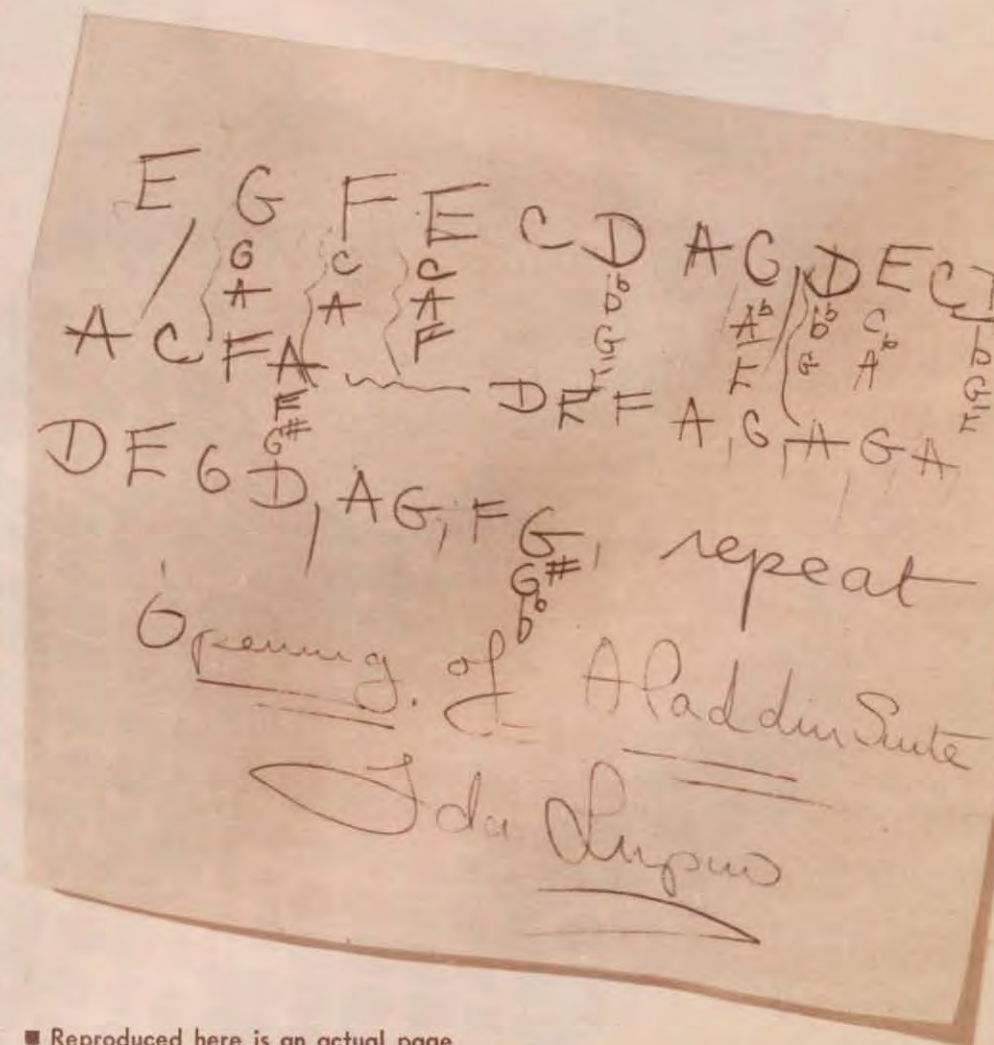 E, G F E C D A G, D E C D
G C C b♭ A♭ b♭ C♭
A A A G E G A b
A C F A F F D E F A, G, A G A G
E E
G#
D E G D, A G, F G, repeat
G#
b♭
Opening of Aladdin Suite
Ida Lupino
■ Reproduced here is an actual page